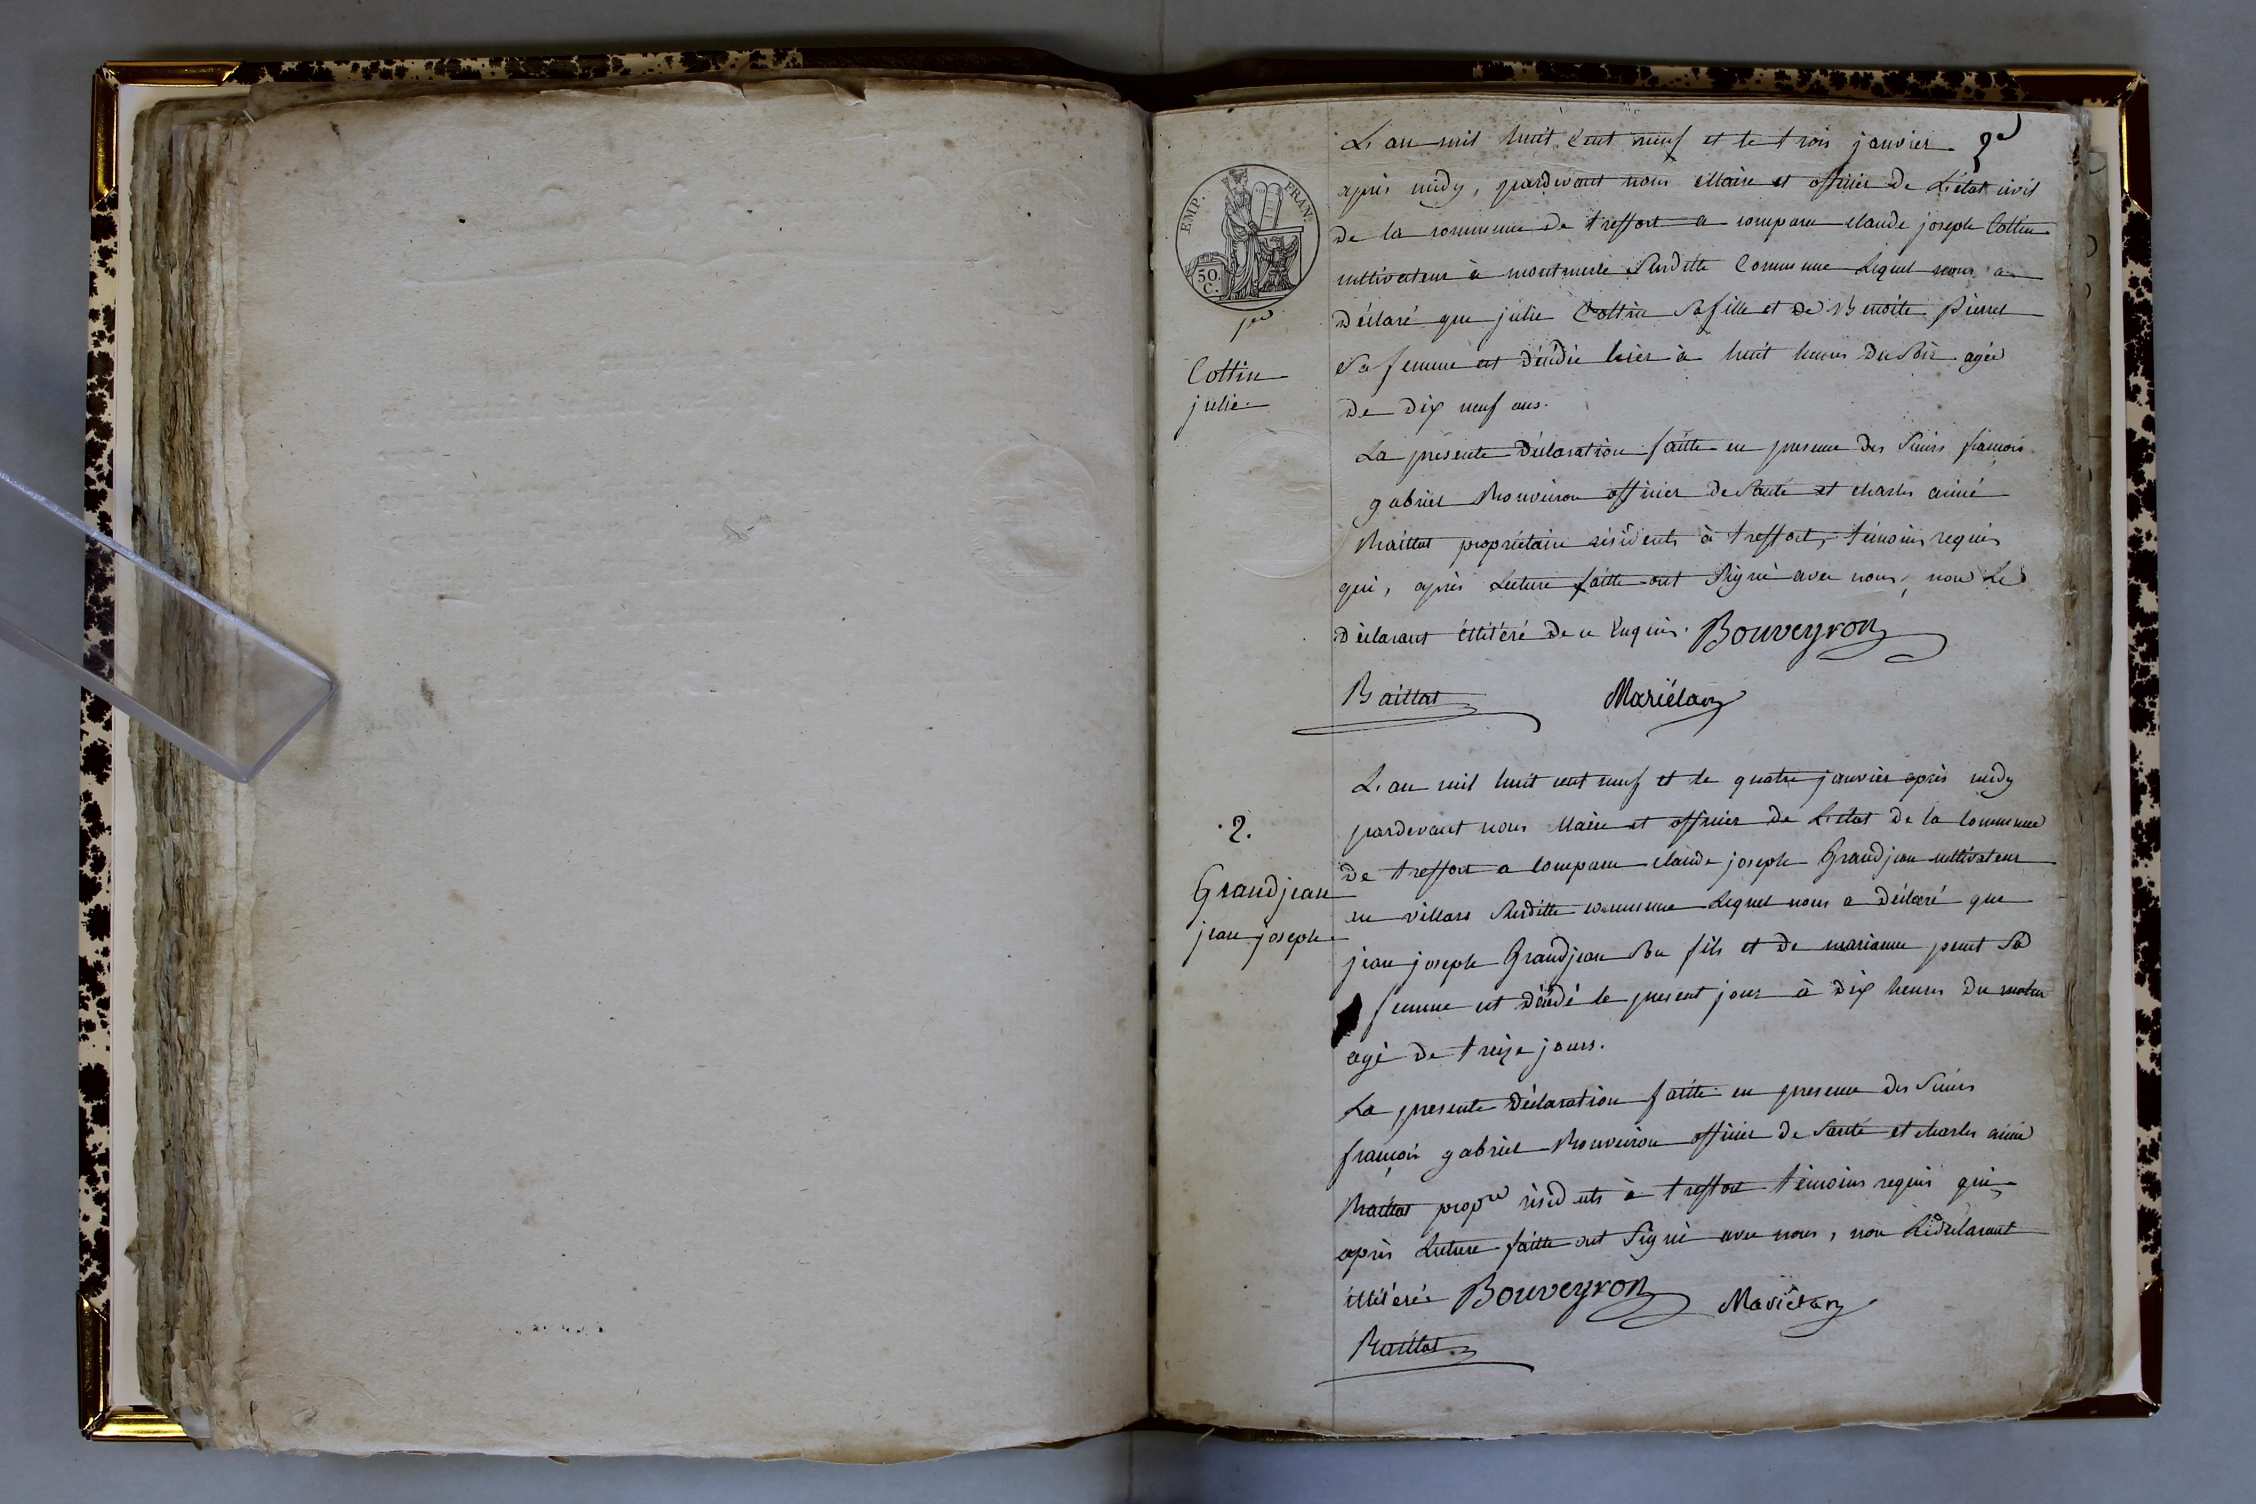 2e
EMP. FRAN.
50.
C.
1er
Cottin
julie.
L'an mil huit Cent neuf et le trois janvier
après midy, pardevant nous Maire et officier de L'état civil
de la commune de treffort a comparu claude joseph Cottin
cultivateur à montmerle Susditte Commune Lequel nous a
déclaré que julie Cottin Sa fille et de Benoite Pierret
Sa femme est décédée hier à huit heures du Soir agée
de dix neuf ans.
La présente déclaration faitte en presence des Sieurs francois
gabriel Bouveiron officier de Santé et charles aimé
Baillat propriétaire résidents à treffort, témoins requis
qui, après Lecture faitte ont Signé avec nous, non Le
déclarant illitéré de ce Enquis. Bouveyron
Baillat Mariélan
2.
Grandjean
jean joseph
L'an mil huit cent neuf et le quatre janvier après midy
pardevant nous Maire et officier de L'etat de la Commune
de treffort a Comparu claude joseph Grandjean cultivateur
en villars Susditte commune Lequel nous a déclaré que
jean joseph Grandjean Son fils et de marianne Sa
femme est décédé le present jour à dix heures du matin
agé de treize jours.
La presente déclaration faitte en presence des Sieurs
françois gabriel Bouveiron officier de Santé et charles aimé
Baillat propre résidents à treffort témoins requis qui
après Lecture faitte ont Signé avec nous, non Le déclarant
illitéré Bouveyron Mariélan
Baillat